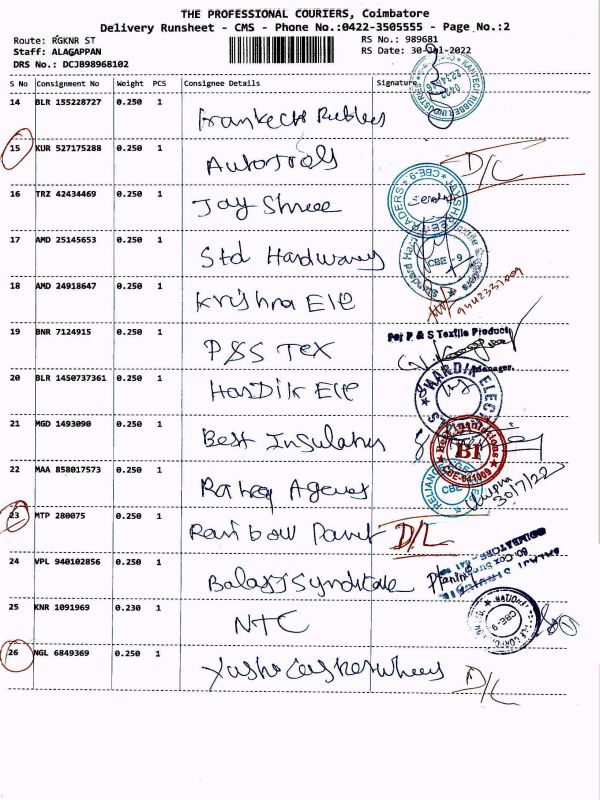 THE PROFESSIONAL COURIERS, Coimbatore
Delivery Runsheet - CMS - Phone No.:0422-3505555 - Page No.:2
Route: RGKNR ST
RS No.: 989681
Staff: ALAGAPPAN
RS Date: 30-Jul-2022
DRS No.: DCJB98968102
S No Consignment No Weight PCS Consignee Details Signature
14 BLR 155228727 0.250 1 Frankech Rubbers
15 KUR 527175288 0.250 1 Autotrols D/L
16 TRZ 42434469 0.250 1 Jay Shree
17 AMD 25145653 0.250 1 Std Hardwares
CBE - 9
18 AMD 24918647 0.250 1 Krishna Ele
For P & S Textile Products
19 BNR 7124915 0.250 1 P&S Tex
Manager.
20 BLR 1450737361 0.250 1 Hardik Ele
HARDIK ELEC
21 MGD 1493090 0.250 1 Best Insulation
Best Insulations
BI
CBE-641009
22 MAA 858017573 0.250 1 Agency
30/7/22
23 MTP 280075 0.250 1 Rainbow Paint D/L
24 VPL 940102856 0.250 1 Balaji Syndicate
COIMBATORE
25 KNR 1091969 0.230 1 NTC
CBE-9
26 NGL 6849369 0.250 1 D/L